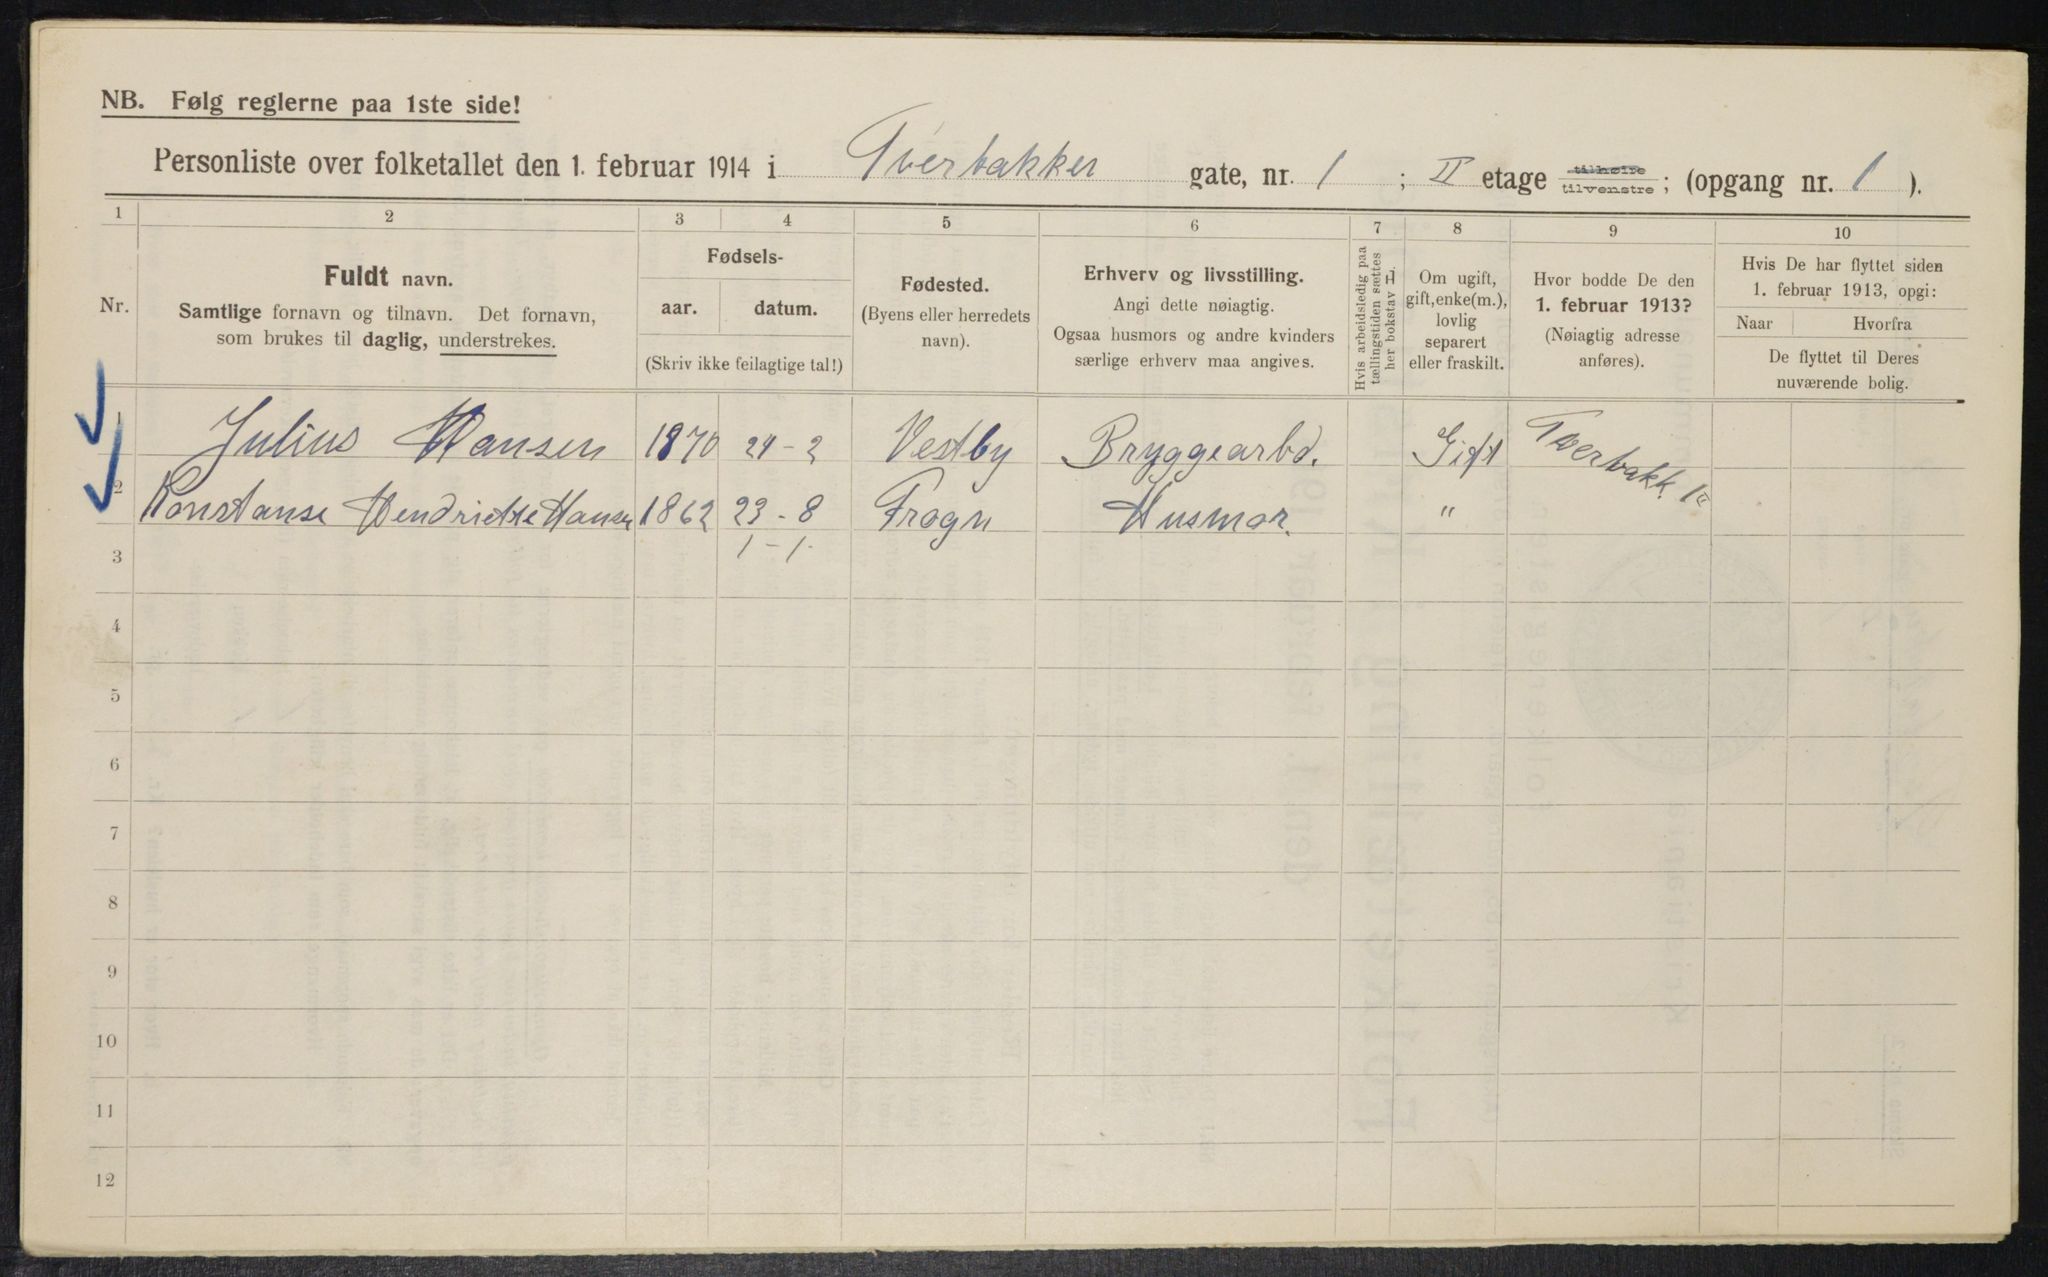 NB. Følg reglerne paa 1ste side!
Personliste over folketallet den 1. februar 1914 i Tverbakker gate, nr. 1 ; II etage tilhøire tilvenstre ; (opgang nr. 1 ).
1 2 3 4 5 6 7 8 9 10
Nr.
Fuldt navn.
Samtlige fornavn og tilnavn. Det fornavn,
som brukes til daglig, understrekes.
Fødsels-
aar. datum.
(Skriv ikke feilagtige tal!)
Fødested.
(Byens eller herredets
navn).
Erhverv og livsstilling.
Angi dette nøiagtig.
Ogsaa husmors og andre kvinders
særlige erhverv maa angives.
Hvis arbeidsledig paa
tællingstiden sættes
her bokstav L.
Om ugift,
gift, enke(m.),
lovlig
separert
eller fraskilt.
Hvor bodde De den
1. februar 1913?
(Nøiagtig adresse
anføres).
Hvis De har flyttet siden
1. februar 1913, opgi:
Naar Hvorfra
De flyttet til Deres
nuværende bolig.
1 Julius Hansen 1870 24-2 Vestby Bryggearbd. Gift Tverbakk. 1
2 Konstanse Hendriette Hansen 1862 23-8 Frogn Husmor. "
1-1.
3
4
5
6
7
8
9
10
11
12